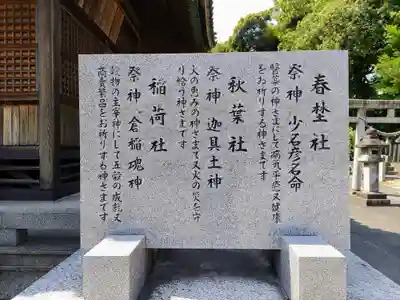 春埜社
祭神 少名彦名命
醫薬の神さまにして病気平癒又健康
をお祈りする神さまです
秋葉社
祭神 迦具土神
火の恵みの神さまで又火の災を守
り給う神さまです
稲荷社
祭神 倉稲魂神
穀物の主宰神にして五穀の成就又
商売繁昌をお祈りする神さまです